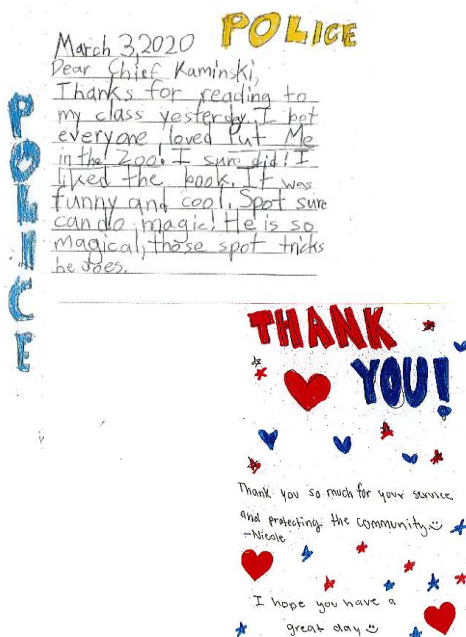 POLICE
POLICE
March 3,2020
Dear Chief Kaminski,
Thanks for reading to
my class yesterday. I bet
everyone loved Put Me
in the Zoo! I sure did! I
liked the book. It was
funny and cool. Spot sure
can do magic! He is so
magical, those spot tricks
he does.
THANK
YOU!
Thank you so much for your service
and protecting the community
-Nicole
I hope you have a
great day